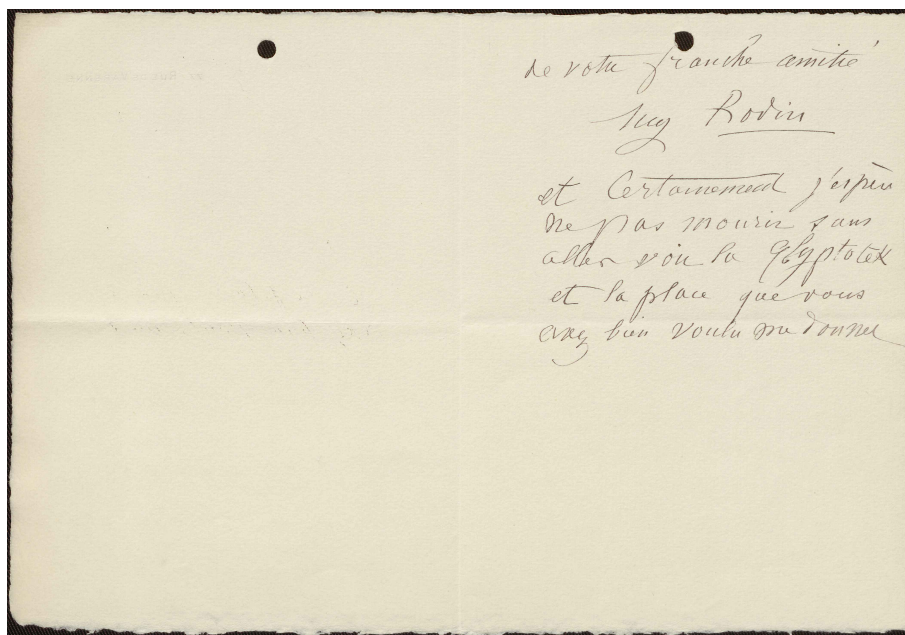 de votre franche amitié
Aug Rodin
et Certainement j'espère
ne pas mourir sans
aller voir la Glyptotek
et la place que vous
avez bien voulu me donner